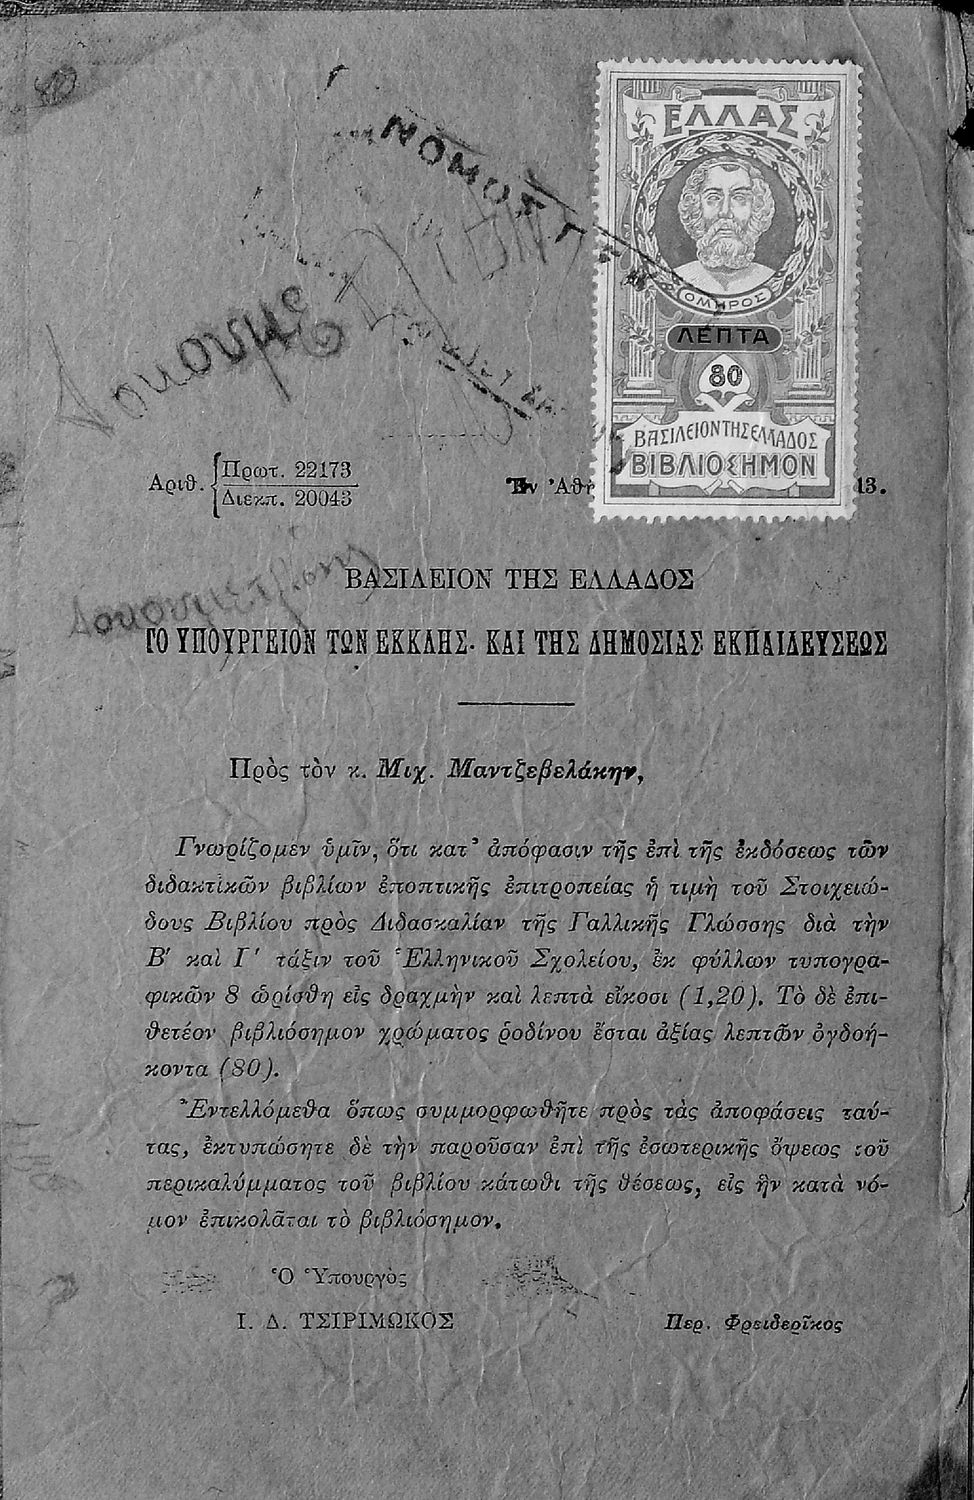 ΝΟΜΟΣ
ΕΛΛΑΣ
ΟΜΗΡΟΣ
ΛΕΠΤΑ
80
ΒΑΣΙΛΕΙΟΝ ΤΗΣ ΕΛΛΑΔΟΣ
ΒΙΒΛΙΟΣΗΜΟΝ
Ἀριθ. Πρωτ. 22173
Διεκπ. 20043
Ἐν Ἀθη 13.
ΒΑΣΙΛΕΙΟΝ ΤΗΣ ΕΛΛΑΔΟΣ
ΤΟ ΥΠΟΥΡΓΕΙΟΝ ΤΩΝ ΕΚΚΛΗΣ. ΚΑΙ ΤΗΣ ΔΗΜΟΣΙΑΣ ΕΚΠΑΙΔΕΥΣΕΩΣ
Πρὸς τὸν κ. Μιχ. Μαντζεβελάκην,
Γνωρίζομεν ὑμῖν, ὅτι κατ᾽ ἀπόφασιν τῆς ἐπὶ τῆς ἐκδόσεως τῶν
διδακτικῶν βιβλίων ἐποπτικῆς ἐπιτροπείας ἡ τιμὴ τοῦ Στοιχειώ-
δους Βιβλίου πρὸς Διδασκαλίαν τῆς Γαλλικῆς Γλώσσης διὰ τὴν
Β′ καὶ Γ′ τάξιν τοῦ Ἑλληνικοῦ Σχολείου, ἐκ φύλλων τυπογρα-
φικῶν 8 ὡρίσθη εἰς δραχμὴν καὶ λεπτὰ εἴκοσι (1,20). Τὸ δὲ ἐπι-
θετέον βιβλιόσημον χρώματος ῥοδίνου ἔσται ἀξίας λεπτῶν ὀγδοή-
κοντα (80).
Ἐντελλόμεθα ὅπως συμμορφωθῆτε πρὸς τὰς ἀποφάσεις ταύ-
τας, ἐκτυπώσητε δὲ τὴν παροῦσαν ἐπὶ τῆς ἐσωτερικῆς ὄψεως τοῦ
περικαλύμματος τοῦ βιβλίου κάτωθι τῆς θέσεως, εἰς ἣν κατὰ νό-
μον ἐπικολᾶται τὸ βιβλιόσημον.
Ὁ Ὑπουργὸς
Ι. Δ. ΤΣΙΡΙΜΩΚΟΣ Περ. Φρειδερῖκος